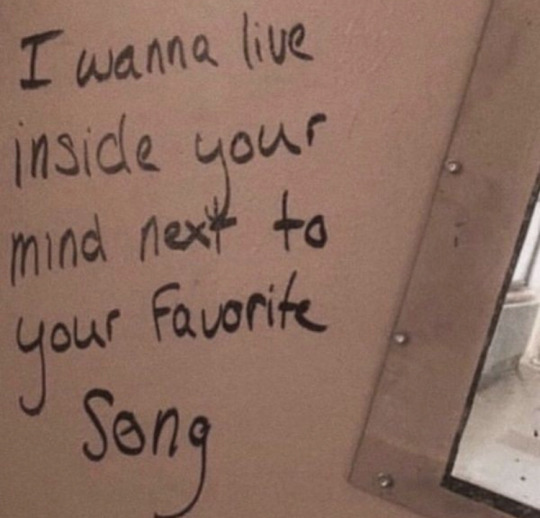 I wanna live
inside your
mind next to
your Favorite
Song